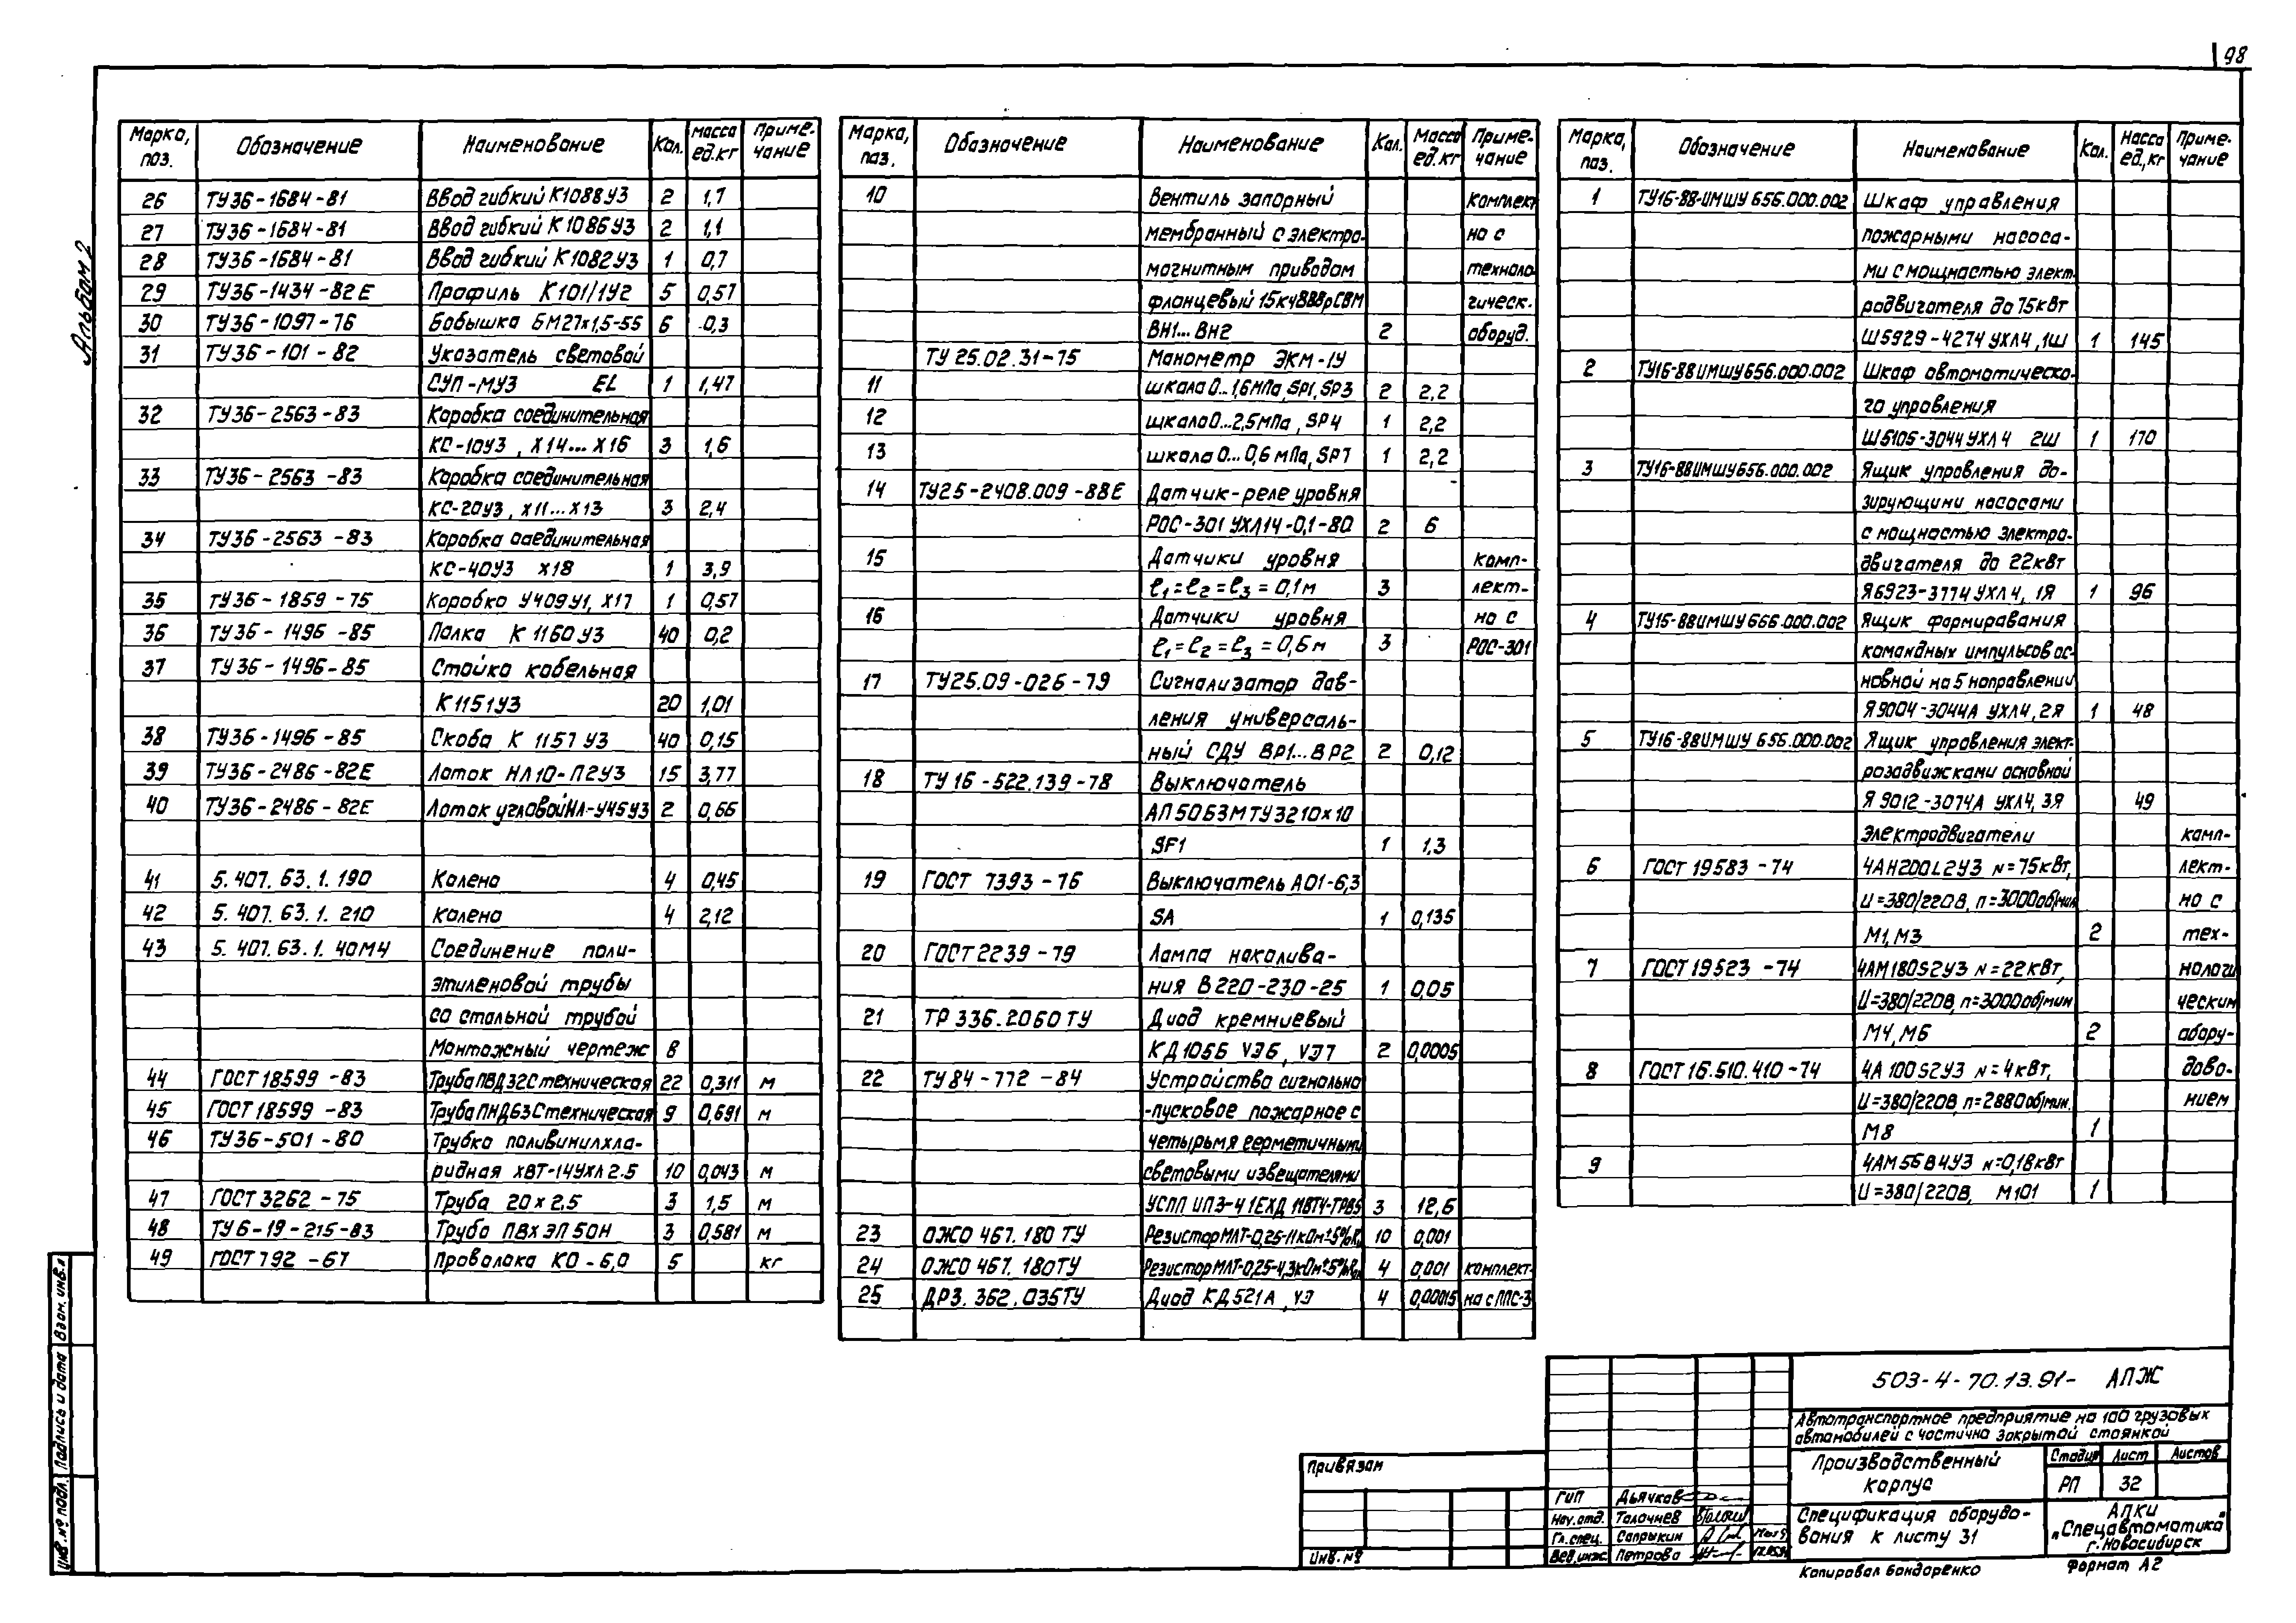 98
Альбом 2
Марка, поз. Обозначение Наименование Кол. Масса ед.кг Приме-чание
26 ТУ36-1684-81 Ввод гибкий К1088У3 2 1,7
27 ТУ36-1684-81 Ввод гибкий К1086У3 2 1,1
28 ТУ36-1684-81 Ввод гибкий К1082У3 1 0,7
29 ТУ36-1434-82Е Профиль К101/1У2 5 0,57
30 ТУ36-1097-76 Бобышка БМ27х1,5-55 6 0,3
31 ТУ36-101-82 Указатель световой
СУП-МУ3 EL 1 1,47
32 ТУ36-2563-83 Коробка соединительная
КС-10У3, Х14...Х16 3 1,6
33 ТУ36-2563-83 Коробка соединительная
КС-20У3, Х11...Х13 3 2,4
34 ТУ36-2563-83 Коробка соединительная
КС-40У3 Х18 1 3,9
35 ТУ36-1859-75 Коробка У409У1, Х17 1 0,57
36 ТУ36-1496-85 Полка К1160У3 40 0,2
37 ТУ36-1496-85 Стойка кабельная
К1151У3 20 1,01
38 ТУ36-1496-85 Скоба К 1157У3 40 0,15
39 ТУ36-2486-82Е Лоток НЛ10-П2У3 15 3,77
40 ТУ36-2486-82Е Лоток угловой НЛ-У45У3 2 0,66
41 5.407.63.1.190 Колено 4 0,45
42 5.407.63.1.210 Колено 4 2,12
43 5.407.63.1.40МЧ Соединение поли-
этиленовой трубы
со стальной трубой
Монтажный чертеж 8
44 ГОСТ 18599-83 Труба ПВД32С техническая 22 0,311 м
45 ГОСТ 18599-83 Труба ПНД63С техническая 9 0,691 м
46 ТУ36-501-80 Трубка поливинилхло-
ридная ХВТ-14УХЛ2.5 10 0,043 м
47 ГОСТ 3262-75 Труба 20х2,5 3 1,5 м
48 ТУ6-19-215-83 Труба ПВХ ЭП 50Н 3 0,581 м
49 ГОСТ 792-67 Проволока КО-6,0 5 кг
Марка, поз. Обозначение Наименование Кол. Масса ед.кг Приме-чание
10 Вентиль запорный комплект
мембранный с электро- но с
магнитным приводом техноло-
фланцевый 15кч888рСВМ гическ.
ВН1...ВН2 2 оборуд.
ТУ 25.02.31-75 Манометр ЭКМ-1У
11 шкала 0...1,6МПа, SP1, SP3 2 2,2
12 шкала 0...2,5МПа, SP4 1 2,2
13 шкала 0...0,6 МПа, SP7 1 2,2
14 ТУ25-2408.009-88Е Датчик-реле уровня
РОС-301 УХЛ14-0,1-80 2 6
15 Датчики уровня комп-
ℓ1=ℓ2=ℓ3=0,1м 3 лект-
16 Датчики уровня но с
ℓ1=ℓ2=ℓ3=0,6м 3 РОС-301
17 ТУ25.09-026-79 Сигнализатор дав-
ления универсаль-
ный СДУ ВР1...ВР2 2 0,12
18 ТУ16-522.139-78 Выключатель
АП5063МТУ3210х10
SF1 1 1,3
19 ГОСТ 7393-76 Выключатель А01-6,3
SA 1 0,135
20 ГОСТ 2239-79 Лампа накалива-
ния В220-230-25 1 0,05
21 ТР 336.2060ТУ Диод кремниевый
КД105Б VЭ6, VЭ7 2 0,0005
22 ТУ84-772-84 Устройство сигнально
-пусковое пожарное с
четырьмя герметичными
световыми извещателями
УСПП 3 12,6
23 ОЖО 467.180 ТУ Резистор МЛТ-0,25-11кОм±5% 10 0,001
24 ОЖО 467.180ТУ Резистор МЛТ-0,25-4,3кОм±5% 4 0,001 комплект-
25 ДР3.362.035ТУ Диод КД521А, VЭ 4 0,00015 но с ППС-3
Марка, поз. Обозначение Наименование Кол. Масса ед,кг Приме-чание
1 ТУ16-88-ИМШУ 656.000.002 Шкаф управления
пожарными насоса-
ми с мощностью элект-
родвигателя до 75кВт
Ш5929-4274 УХЛ4, 1Ш 1 145
2 ТУ16-88ИМШУ656.000.002 Шкаф автоматическо-
го управления
Ш5105-3044УХЛ4 2Ш 1 170
3 ТУ16-88ИМШУ656.000.002 Ящик управления до-
зирующими насосами
с мощностью электро-
двигателя до 22кВт
Я6923-3774УХЛ4, 1Я 1 96
4 ТУ16-88ИМШУ656.000.002 Ящик формирования
командных импульсов ос-
новной на 5 направлений
Я9004-3044А УХЛ4, 2Я 1 48
5 ТУ16-88ИМШУ 656.000.002 Ящик управления элект-
розадвижками основной
Я9012-3074А УХЛ4, 3Я 49
Электродвигатели комп-
6 ГОСТ 19583-74 4АН200L2У3 N=75кВт, лект-
U=380/220В, n=3000об/мин но с
М1, М3 2 тех-
7 ГОСТ 19523-74 4АМ180S2У3 N=22кВт, нологи
U=380/220В, n=3000об/мин ческим
М4, М6 2 обору-
8 ГОСТ 16.510.410-74 4А100S2У3 N=4кВт, дово-
U=380/220В, n=2880об/мин. нием
М8 1
9 4АМ56В4У3 N=0,18кВт
U=380/220В, М101 1
503-4-70.13.91- АПЖ
Автотранспортное предприятие на 100 грузовых
автомобилей с частично закрытой стоянкой
Производственный корпус
Стадия Лист Листов
РП 32
Спецификация оборудо-
вания к листу 31
АПКИ
„Спецавтоматика"
г.Новосибирск
Привязан
Инв.№
ГИП Дьячков
Нач.отд. Толочнев
Гл.спец. Сапрыкин
Вед.инж. Петрова
Копировал Бондоренко
Формат А2
Инв.№ подл. Подпись и дата Взам. инв.№